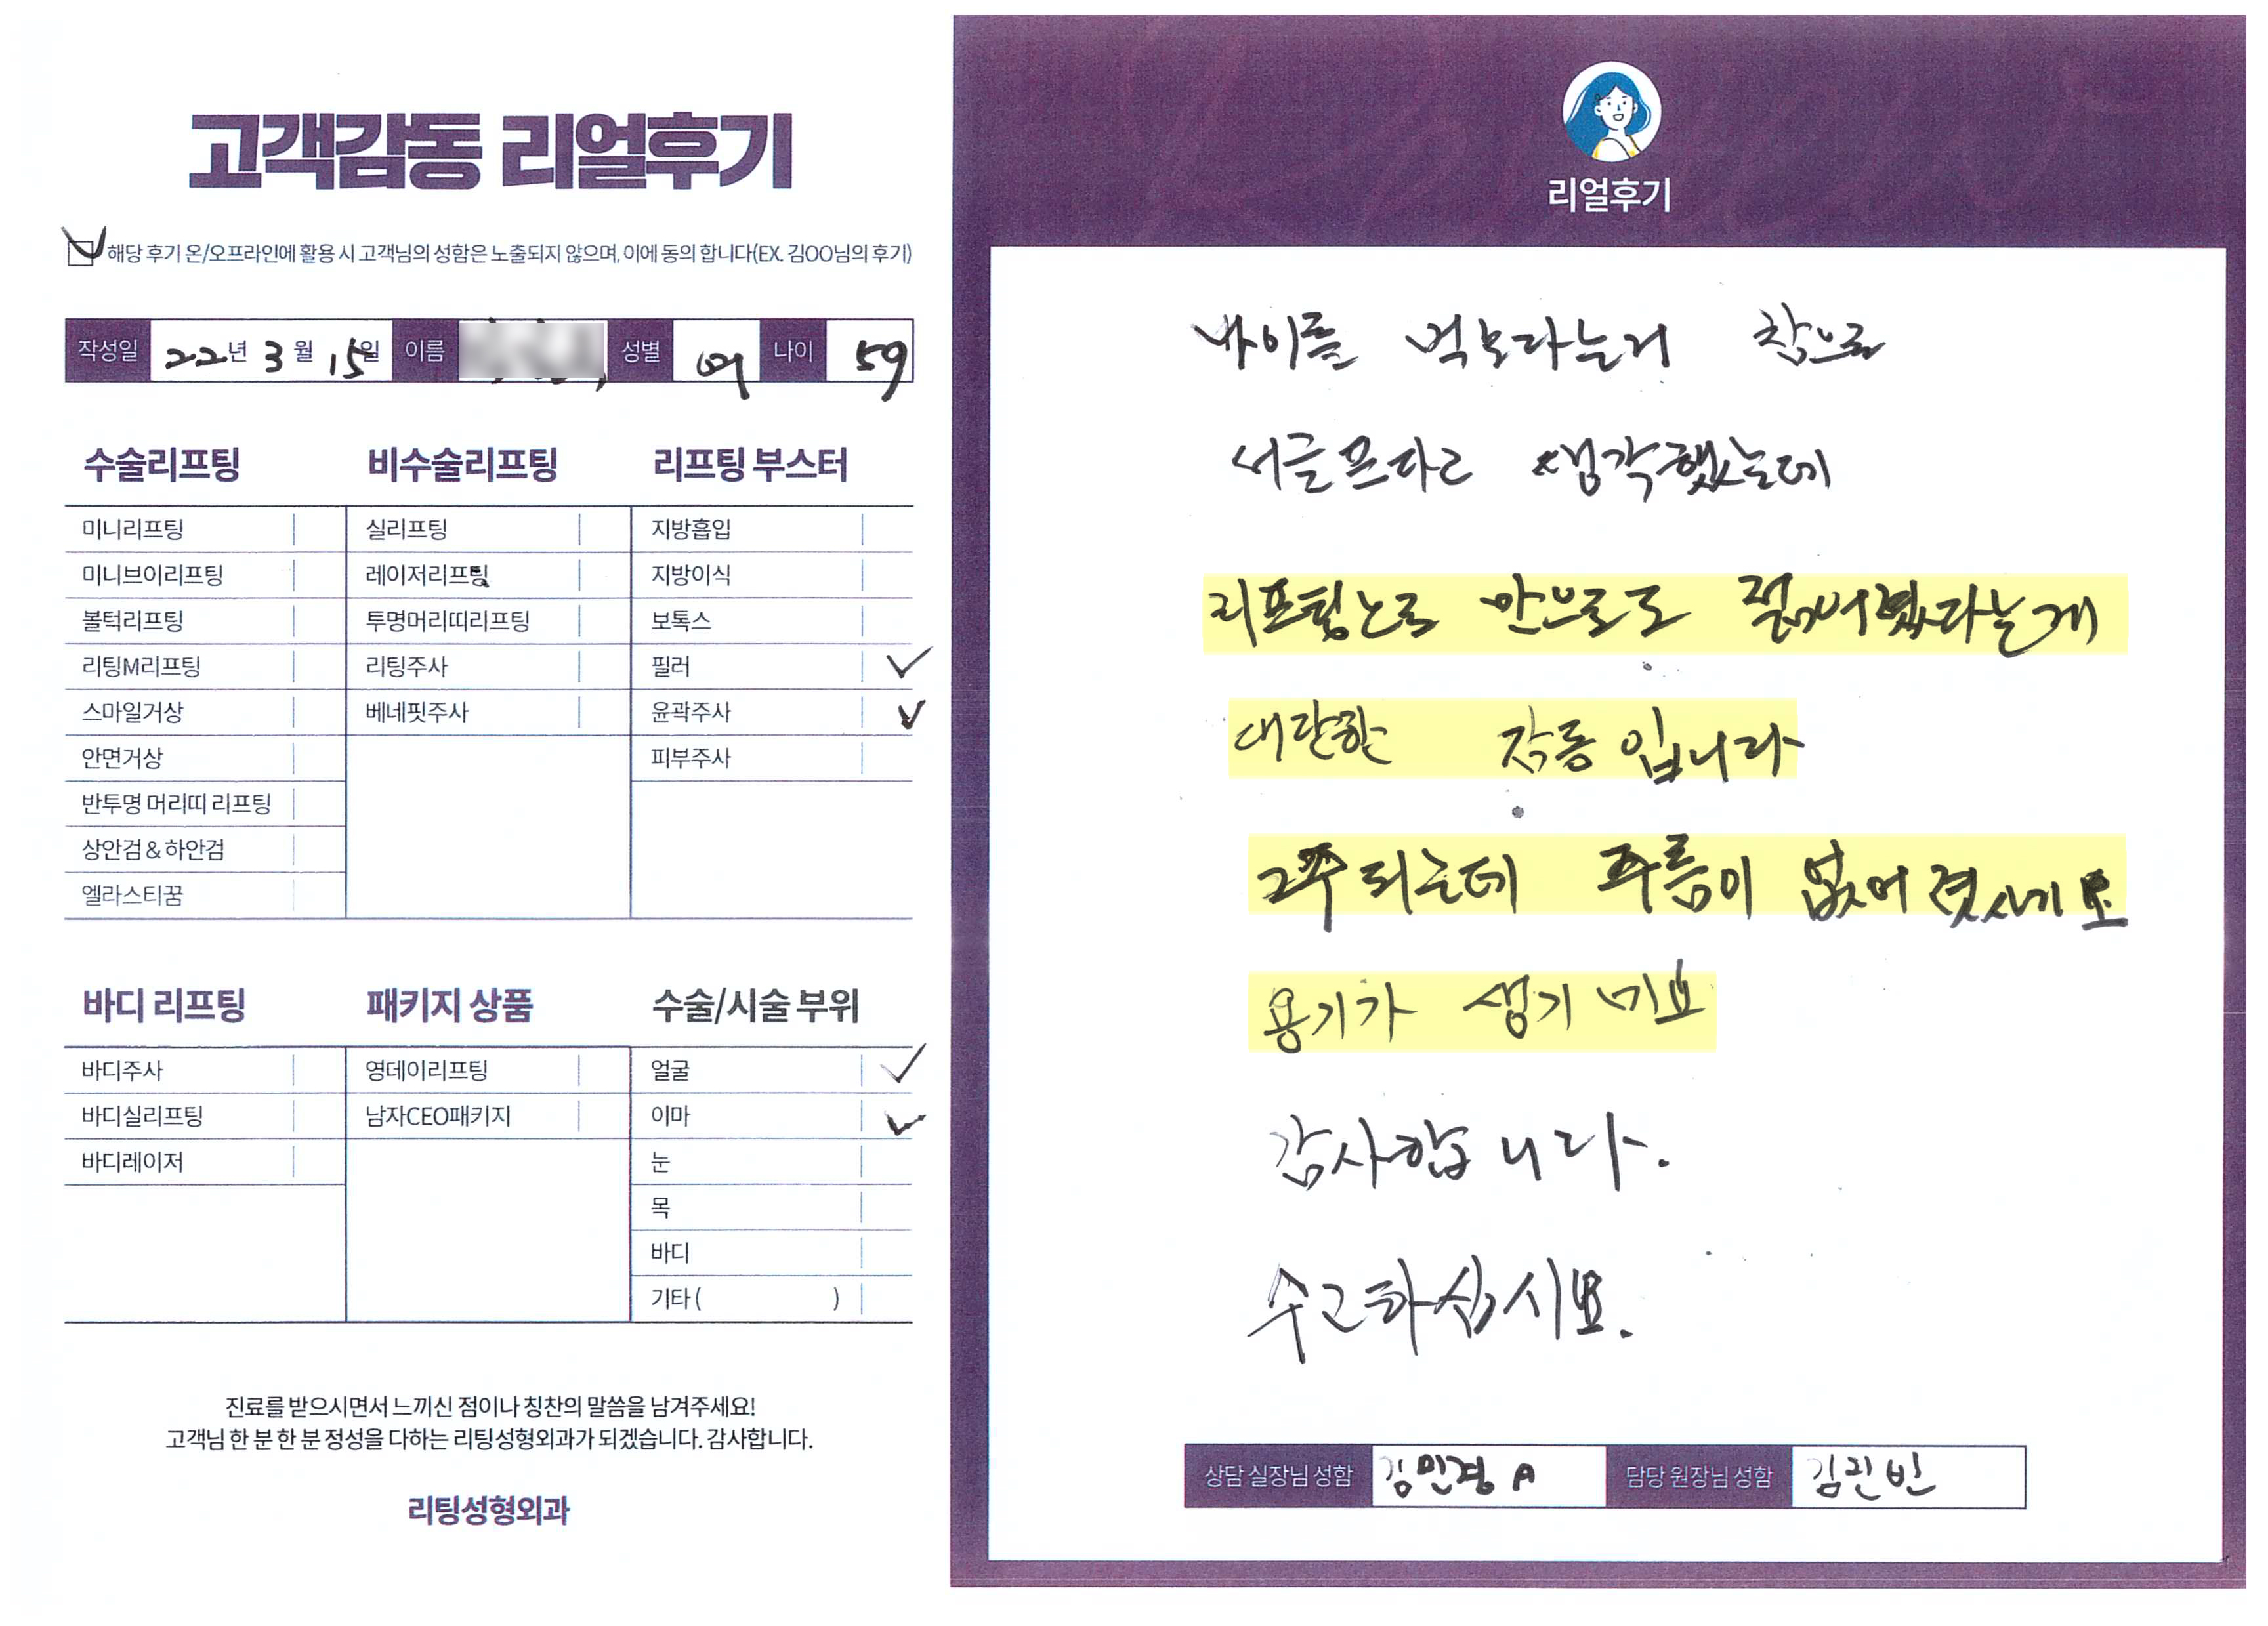 고객감동 리얼후기
해당 후기 온/오프라인에 활용 시 고객님의 성함은 노출되지 않으며, 이에 동의 합니다(EX. 김OO님의 후기)
작성일 22년 3월 15일 이름 성별 여 나이 59
수술리프팅
미니리프팅
미니브이리프팅
볼턱리프팅
리팅M리프팅
스마일거상
안면거상
반투명 머리띠 리프팅
상안검 & 하안검
엘라스티꿈
비수술리프팅
실리프팅
레이저리프팅
투명머리띠리프팅
리팅주사
베네핏주사
리프팅 부스터
지방흡입
지방이식
보톡스
필러
윤곽주사
피부주사
바디 리프팅
바디주사
바디실리프팅
바디레이저
패키지 상품
영데이리프팅
남자CEO패키지
수술/시술 부위
얼굴
이마
눈
목
바디
기타 ( )
진료를 받으시면서 느끼신 점이나 칭찬의 말씀을 남겨주세요!
고객님 한 분 한 분 정성을 다하는 리팅성형외과가 되겠습니다. 감사합니다.
리팅성형외과
리얼후기
나이를 먹는다는거 참으로
서글프다고 생각했는데
만으로도 젊어졌다는게
대단한 감동입니다
2주 되는데 주름이
용기가 생기네요
감사합니다.
수고하십시요.
상담 실장님 성함 김민경 A 담당 원장님 성함